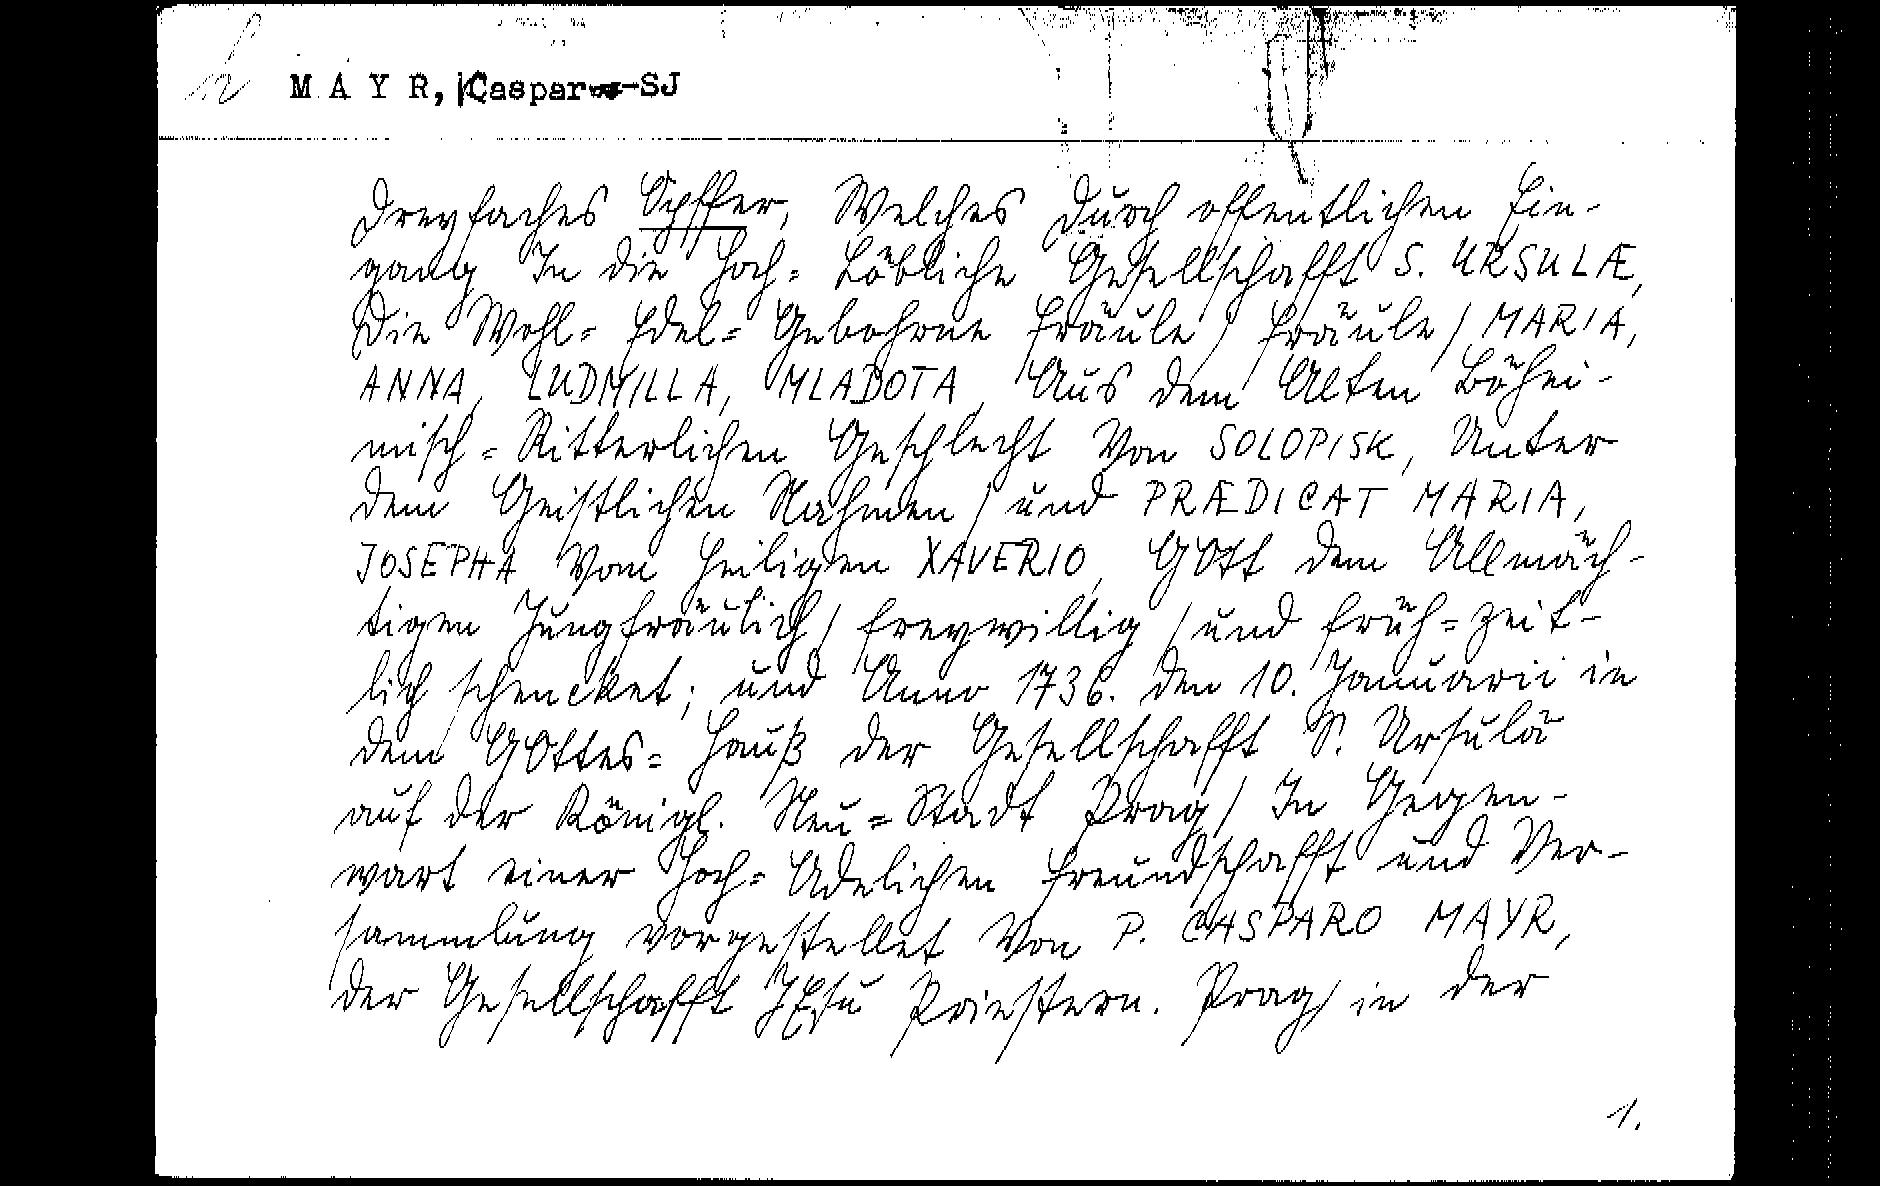 MAYR, Caspar SJ
Dreyfaches Opffer, Welches durch offentlichen Ein-
gang In die Hoch= Löbliche Gesellschafft S. URSULÆ,
Die Wohl= Edel= Gebohrne Fräule / Fräule / MARIA,
ANNA, LUDMILLA, MLADOTA, Aus dem Alten Böhei-
misch=Ritterlichen Geschlecht Von SOLOPISK, Unter
dem Geistlichen Nahmen / und PRÆDICAT MARIA,
JOSEPHA Vom Heiligen XAVERIO, GOtt dem Allmäch-
tigen Jungfräulich / freywillig / und früh=zeit-
lich schencket; und Anno 1736. den 10. Januarii in
dem GOttes= Hauß der Gesellschafft S. Ursulä
auf der Königl. Neu=Stadt Prag / In Gegen-
wart einer Hoch= Adelichen Freundschafft und Ver-
sammlung vorgestellet Von P. CASPARO MAYR,
der Gesellschafft JEsu Priestern. Prag / in der
1.